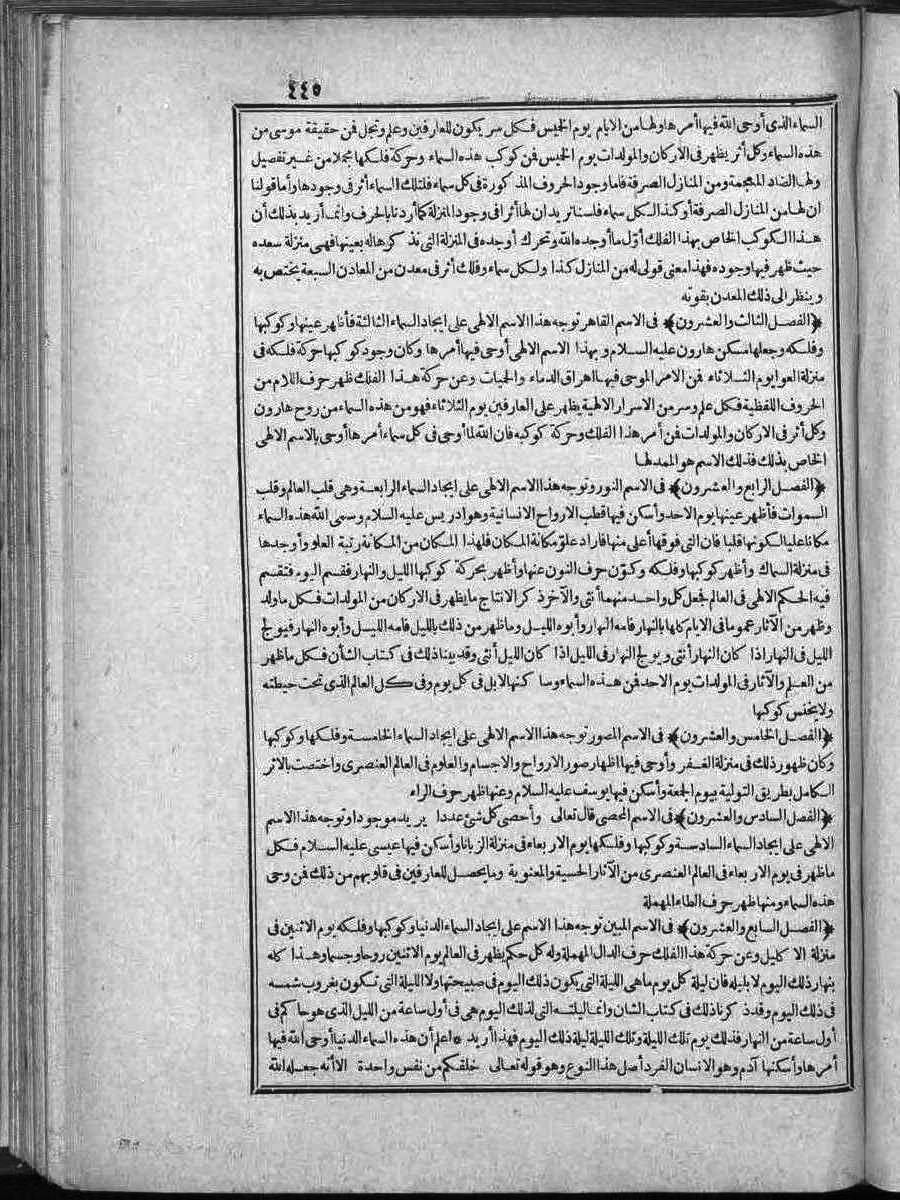 ٤٤٥
السماء الذى أوحى الله فيها أمرها ولها من الايام يوم الخيس فكل سر يكون للعارفين وعلم وتجل فن حقيقة موسى من
هذه السماء وكل أثر يظهر فى الاركان والمولدات يوم الخيس فن كوكب هذه السماء وحركة فلكها مجملا من غير تفصيل
ولها الضاد المجمة ومن المنازل الصرفة فاما وجود الحروف المذكورة فى كل سماء فلتلك السماء أثر فى وجودها وأما قولنا
ان لها من المنازل الصرفة أو كذا لكل سماء فلسنا نريد ان لها أثرا فى وجود المنزلة كما أردنا بالحرف وانما أريد بذلك أن
هذا الكوكب الخاص بهذا الفلك أول ما أوجده الله وتحرك أوجده فى المنزلة التى نذكرها له بعينها فهى منزلة سعده
حيث ظهر فيها وجوده فهذا معنى قولى له من المنازل كذا ولكل سماء وفلك أثر فى معدن من المعادن السبعة يختص به
وينظر الى ذلك المعدن بقوته
﴿الفصل الثالث والعشرون﴾ فى الاسم القاهر توجه هذا الاسم الالهى على ايجاد السماء الثالثة فأظهر عينها وكوكبها
وفلكه وجعلها مسكن هارون عليه السلام وبهذا الاسم الالهى أوحى فيها أمرها وكان وجود كوكبها حركة فلكه فى
منزلة العوا يوم الثلاثاء فمن الامر الموحى فيها اهراق الدماء والحيات وعن حركة هذا الفلك ظهر حرف اللام من
الحروف اللفظية فكل علم وسر من الاسرار الالهية يظهر على العارفين يوم الثلاثاء فهو من هذه السماء من روح هارون
وكل أثر فى الاركان والمولدات فن أمر هذا الفلك وحركة كوكبه فان الله لما أوحى فى كل سماء أمرها أوحى بالاسم الالهى
الخاص بذلك فذلك الاسم هو الممد لها
﴿الفصل الرابع والعشرون﴾ فى الاسم النور وتوجه هذا الاسم الالهى على ايجاد السماء الرابعة وهى قلب العالم وقلب
السموات فأظهر عينها يوم الاحد وأسكن فيها قطب الارواح الانسانية وهو ادريس عليه السلام وسمى الله هذه السماء
مكانا عليا لكونها قلبا فان التى فوقها أعلى منها فاراد علو مكانة المكان فلهذا المكان من المكانة رتبة العلو وأوجدها
فى منزلة السماك وأظهر كوكبها وفلكه وكون حرف النون عنها وأظهر بحركة كوكبها الليل والنهار فقسم اليوم فتقسم
فيه الحكم الالهى فى العالم فجعل كل واحد منهما أنثى والآخر ذكرا لانتاج ما يظهر فى الاركان من المولدات فكل ما ولد
وظهر من الآثار عموما فى الايام كلها بالنهار فامه النهار وأبوه الليل وما ظهر من ذلك بالليل فامه الليل وأبوه النهار فيولج
الليل فى النهار اذا كان النهار أنثى ويولج النهار فى الليل اذا كان الليل أنثى وقد بينا ذلك فى كتاب الشأن فكل ما ظهر
من العلم والآثار فى المولدات يوم الاحد فن هذه السماء وساكنها لا بل فى كل يوم وفى كل العالم الذى تحت حيطته
ولا يخنس كوكبها
﴿الفصل الخامس والعشرون﴾ فى الاسم المصور توجه هذا الاسم الالهى على ايجاد السماء الخامسة وفلكها وكوكبها
وكان ظهور ذلك فى منزلة الغفر وأوحى فيها اظهار صور الارواح والاجسام والعلوم فى العالم العنصرى واختصت بالاثر
الكامل بطريق التولية بيوم الجمعة وأسكن فيها يوسف عليه السلام وعنها ظهر حرف الراء
﴿الفصل السادس والعشرون﴾ فى الاسم المحصى قال تعالى وأحصى كل شئ عددا يريد موجودا وتوجه هذا الاسم
الالهى على ايجاد السماء السادسة وكوكبها وفلكها يوم الاربعاء فى منزلة الزبانا وأسكن فيها عيسى عليه السلام فكل
ما ظهر فى يوم الاربعاء فى العالم العنصرى من الآثار الحسية والمعنوية وما يحصل للعارفين فى قلوبهم من ذلك فن وحى
هذه السماء ومنها ظهر حرف الطاء المهملة
﴿الفصل السابع والعشرون﴾ فى الاسم المبين توجه هذا الاسم على ايجاد السماء الدنيا وكوكبها وفلكه يوم الاثنين فى
منزلة الاكليل وعن حركة هذا الفلك حرف الدال المهملة وله كل حكم يظهر فى العالم يوم الاثنين روحا وجسما وهذا كله
بنهار ذلك اليوم لا بليله فان ليلة كل يوم ما هى الليلة التى يكون ذلك اليوم فى صبيحتها ولا الليلة التى تكون بغروب شمسه
فى ذلك اليوم وقد ذكرنا ذلك فى كتاب الشان وانما ليلته التى لذلك اليوم هى فى أول ساعة من الليل الذى هو حاكم فى
أول ساعة من النهار فذلك يوم تلك الليلة وتلك الليلة ليلة ذلك اليوم فهذا أريد * اعلم أن هذه السماء الدنيا أوحى الله فيها
أمرها وأسكنها آدم وهو الانسان الفرد أصل هذا النوع وهو قوله تعالى خلقكم من نفس واحدة الا أنه جعله الله